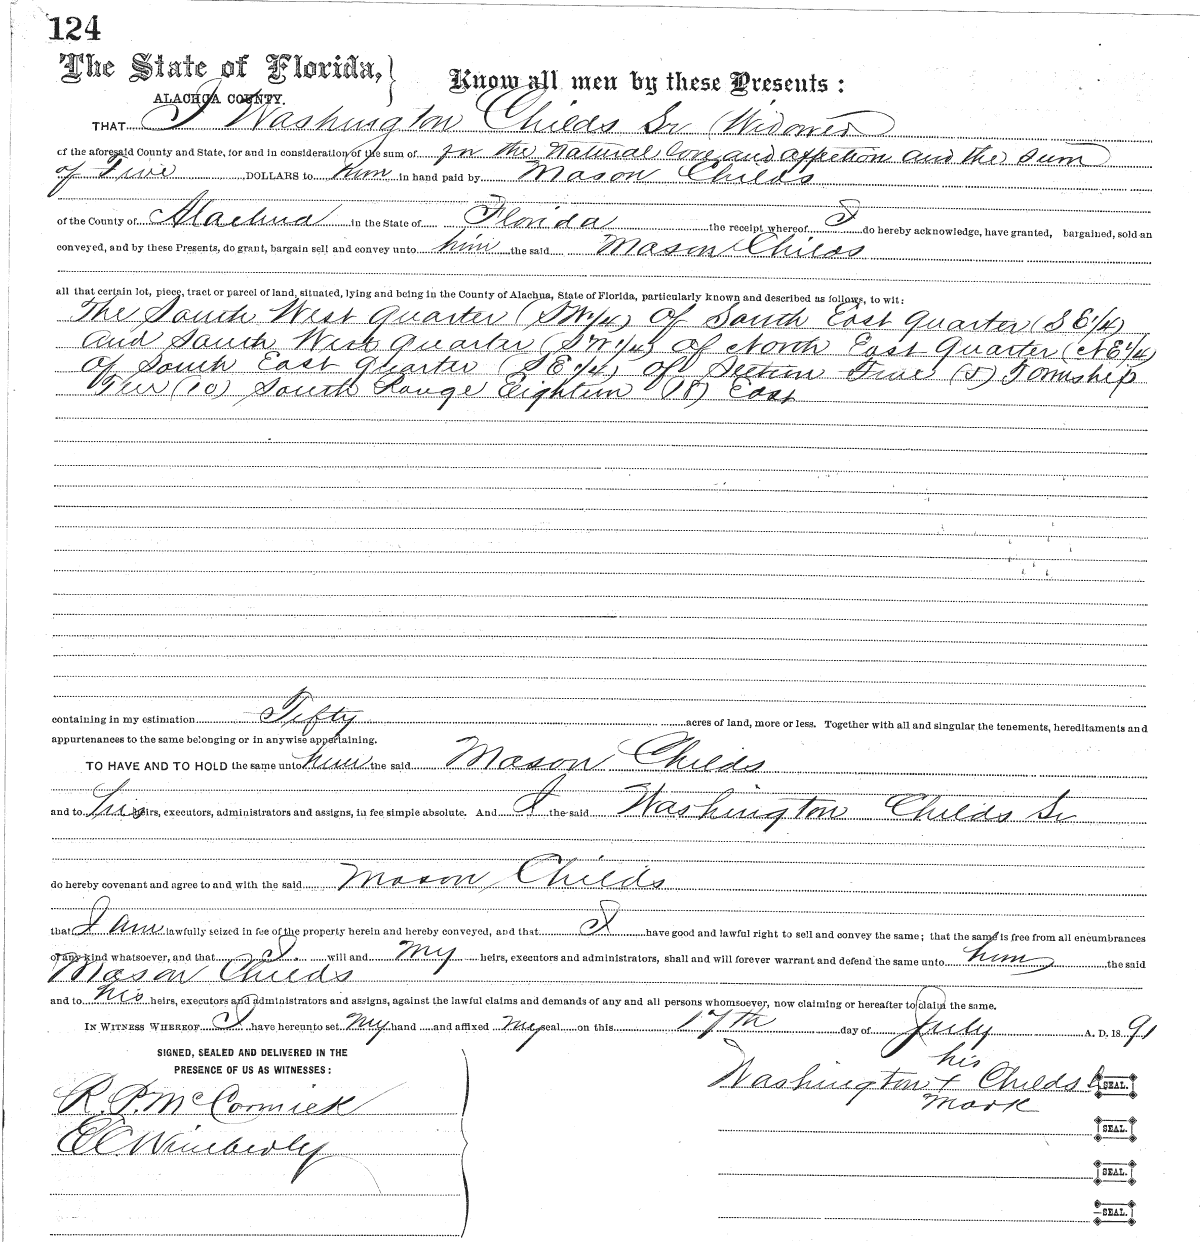 124
The State of Florida, } Know all men by these Presents :
ALACHUA COUNTY.
THAT I Washington Childs Sr (Widower)
of the aforesaid County and State, for and in consideration of the sum of for the natural love and affection and the sum
of Five DOLLARS to him in hand paid by Mason Childs
of the County of Alachua in the State of Florida the receipt whereof I do hereby acknowledge, have granted, bargained, sold an
conveyed, and by these Presents, do grant, bargain sell and convey unto him the said Mason Childs
all that certain lot, piece, tract or parcel of land, situated, lying and being in the County of Alachua, State of Florida, particularly known and described as follows, to wit:
The South West Quarter (SW1/4) of South East Quarter (SE1/4)
and South West Quarter (SW1/4) of North East Quarter (NE1/4)
of South East Quarter (SE1/4) of Section Five (5) Township
Ten (10) South Range Eighteen (18) East
containing in my estimation Fifty acres of land, more or less. Together with all and singular the tenements, hereditaments and
appurtenances to the same belonging or in anywise appertaining.
TO HAVE AND TO HOLD the same unto him the said Mason Childs
and to his heirs, executors, administrators and assigns, in fee simple absolute. And I the said Washington Childs Sr
do hereby covenant and agree to and with the said Mason Childs
that I am lawfully seized in fee of the property herein and hereby conveyed, and that I have good and lawful right to sell and convey the same; that the same is free from all encumbrances
of any kind whatsoever, and that I will and my heirs, executors and administrators, shall and will forever warrant and defend the same unto him the said
Mason Childs
and to his heirs, executors and administrators and assigns, against the lawful claims and demands of any and all persons whomsoever, now claiming or hereafter to claim the same.
IN WITNESS WHEREOF I have hereunto set my hand and affixed my seal on this 17th day of July A. D. 18 91
SIGNED, SEALED AND DELIVERED IN THE
PRESENCE OF US AS WITNESSES :
R. P. McCormick
E C Wimberly
his
Washington + Childs Sr SEAL.
mark
SEAL.
SEAL.
SEAL.